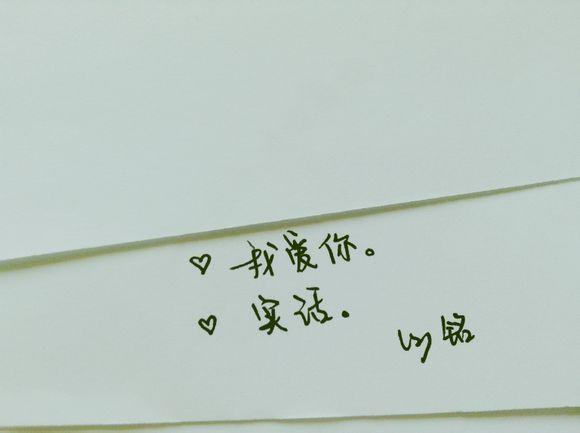 ♡ 我爱你。
♡ 实话。
铭